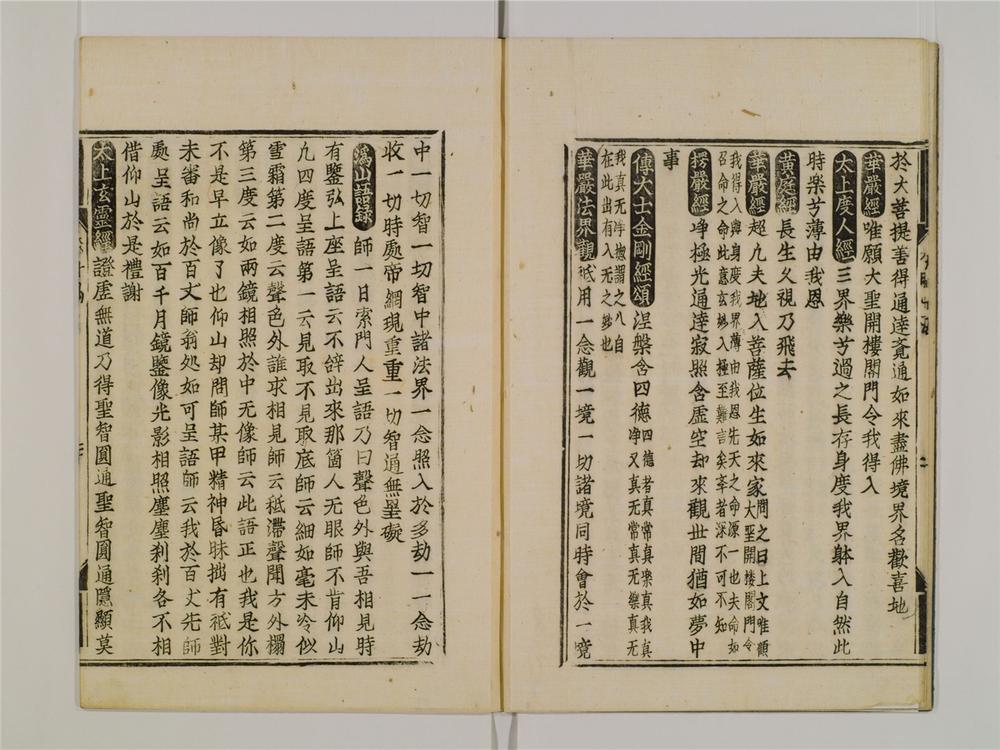 於大菩提善得通達竟通如來盡佛境界名歡喜地
華嚴經唯願大聖開樓閣門令我得入
太上度人經三界樂兮過之長存身度我界躰入自然此
時樂兮薄由我恩
黄庭經長生久視乃飛去
華嚴經超九夫地入菩薩位生如來家問之曰上文唯願大聖開樓閣門令
我得入與身度我界薄由我恩先天之命源一也夫命如
召命之命此意玄妙入極至難言矣幸者深不可不知
楞嚴經净極光通逹寂照含虛空却來觀世間猶如夢中
事
傳大士金剛經頌涅槃含四德四德者真常真樂真我真净又真无常真无樂真无
我真无净摠謂之八自
在此出有入无之妙也
華嚴法界觀祗用一念觀一境一切諸境同時會於一境
中一切智一切智中諸法界一念照入於多劫一一念劫
收一切時處帝網現重重一切智通無罣礙
溈山語録師一日索門人呈語乃曰聲色外與吾相見時
有鑒弘上座呈語云不辝出來那箇人无眼師不肯仰山
九四度呈語第一云見取不見取底師云細如毫末冷似
雪霜第二度云聲色外誰求相見師云祗滯聲聞方外榻
第三度云如兩鏡相照於中无像師云此語正也我是你
不是早立像了也仰山却問師某甲精神昏昧拙有祗對
未審和尚於百丈師翁処如可呈語師云我於百丈先師
處呈語云如百千月鏡鑒像光影相照塵塵刹刹各不相
借仰山於是禮謝
太上玄靈經證虛無道乃得聖智圓通聖智圓通隱顯莫